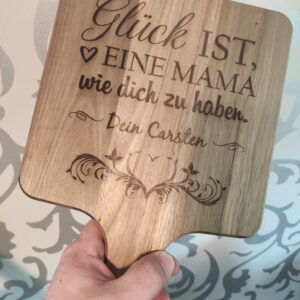 Glück IST,
♡ EINE MAMA
wie dich zu haben.
~ Dein Carsten ~